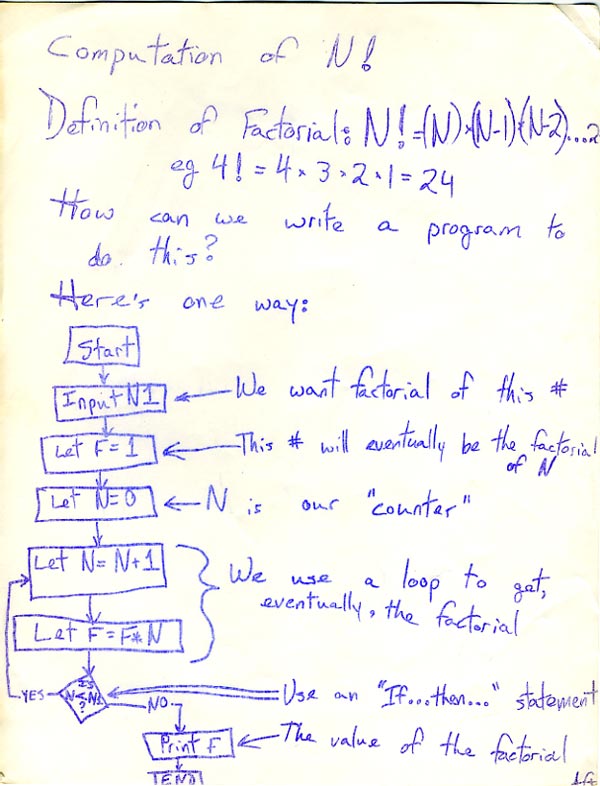 Computation of N!
Definition of Factorial: N! = (N)×(N-1)×(N-2)...2
eg 4! = 4 × 3 × 2 × 1 = 24
How can we write a program to
do this?
Here's one way:
Start
Input N1 ← We want factorial of this #
Let F = 1 ← This # will eventually be the factorial
of N
Let N=0 ← N is our "counter"
Let N = N+1
We use a loop to get,
eventually, the factorial
Let F = F * N
Is
YES N < N1 NO
?
Use an "If...then..." statement
Print F ← The value of the factorial
END